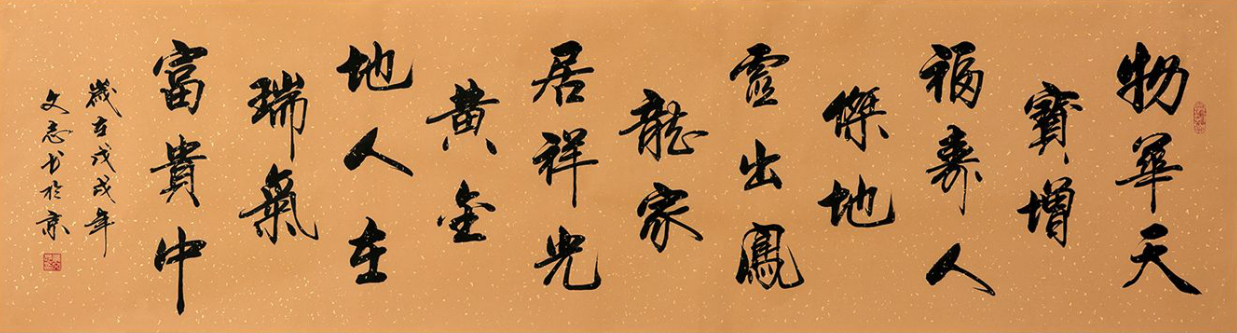 物華天
寶增
福壽人
傑地
靈出鳳
龍家
居祥光
黃金
地人在
瑞氣
富貴中
歲在戊戌年
文志书於京